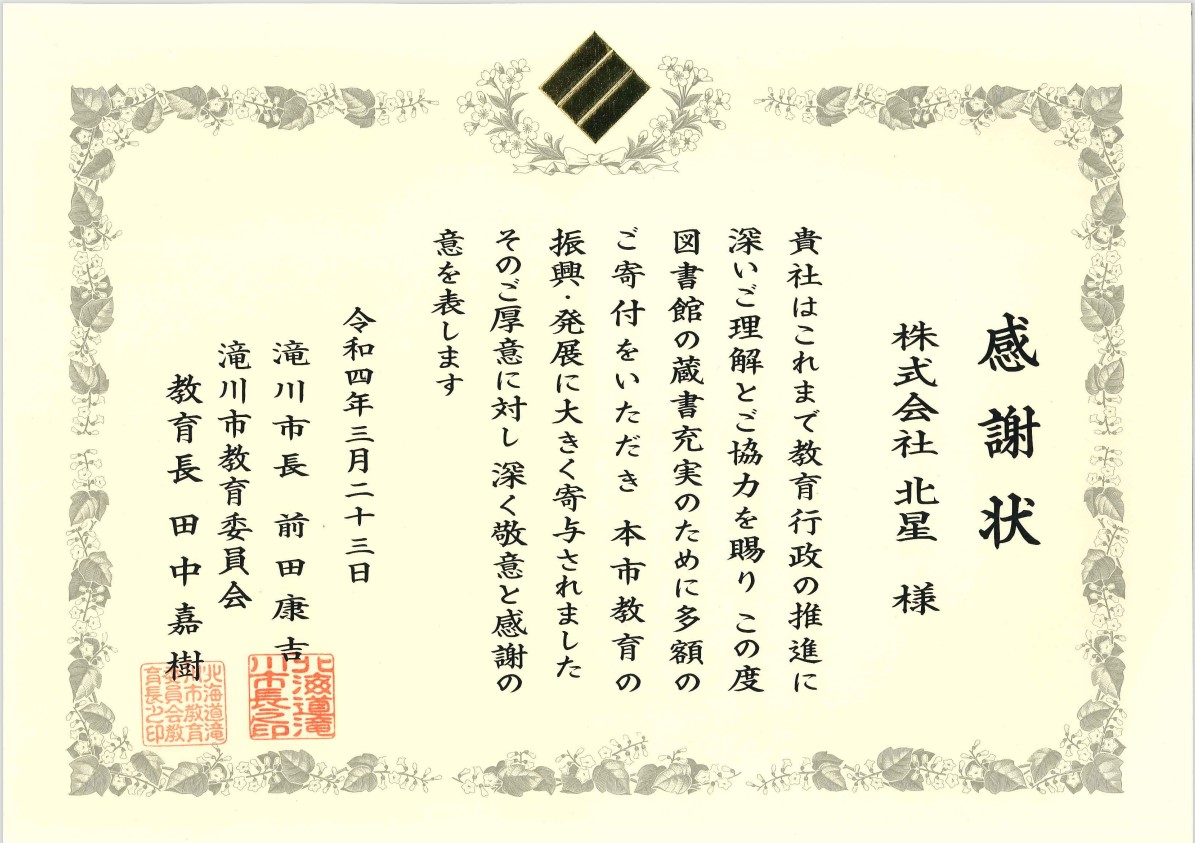 感謝状
株式会社 北星 様
貴社はこれまで教育行政の推進に
深いご理解とご協力を賜り この度
図書館の蔵書充実のために多額の
ご寄付をいただき 本市教育の
振興・発展に大きく寄与されました
そのご厚意に対し 深く敬意と感謝の
意を表します
令和四年三月二十三日
滝川市長 前田康吉
滝川市教育委員会
教育長 田中嘉樹
北海道滝
川市長之印
北海道滝
川市教育
委員会教
育長之印